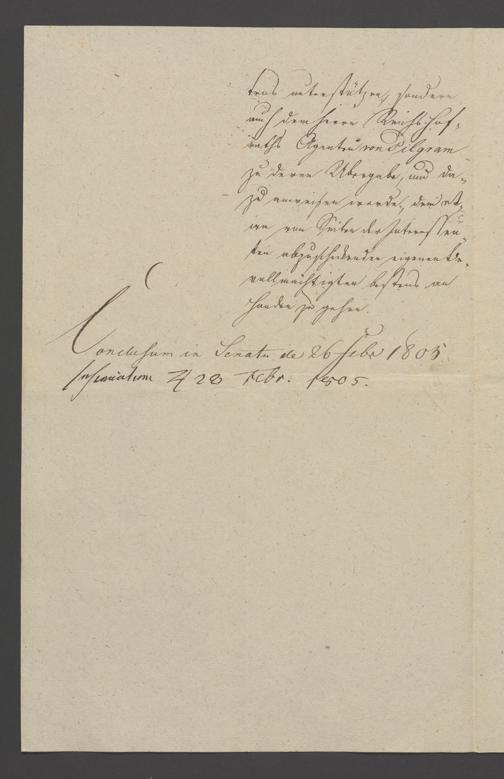 tens unterstützen, sondern
auch dem Herrn Reichshof-
raths Agenten von Pilgram
zu deren Übergabe, und da-
zu anweisen werde, den et-
wa von Seiten der Interessen-
ten abzuschickenden eigenen Be-
vollmächtigten bestens an
Handen zu gehen.
Conclusum in Senatu de 26 Febr 1805
Insinuatum 28 Febr. 1805.